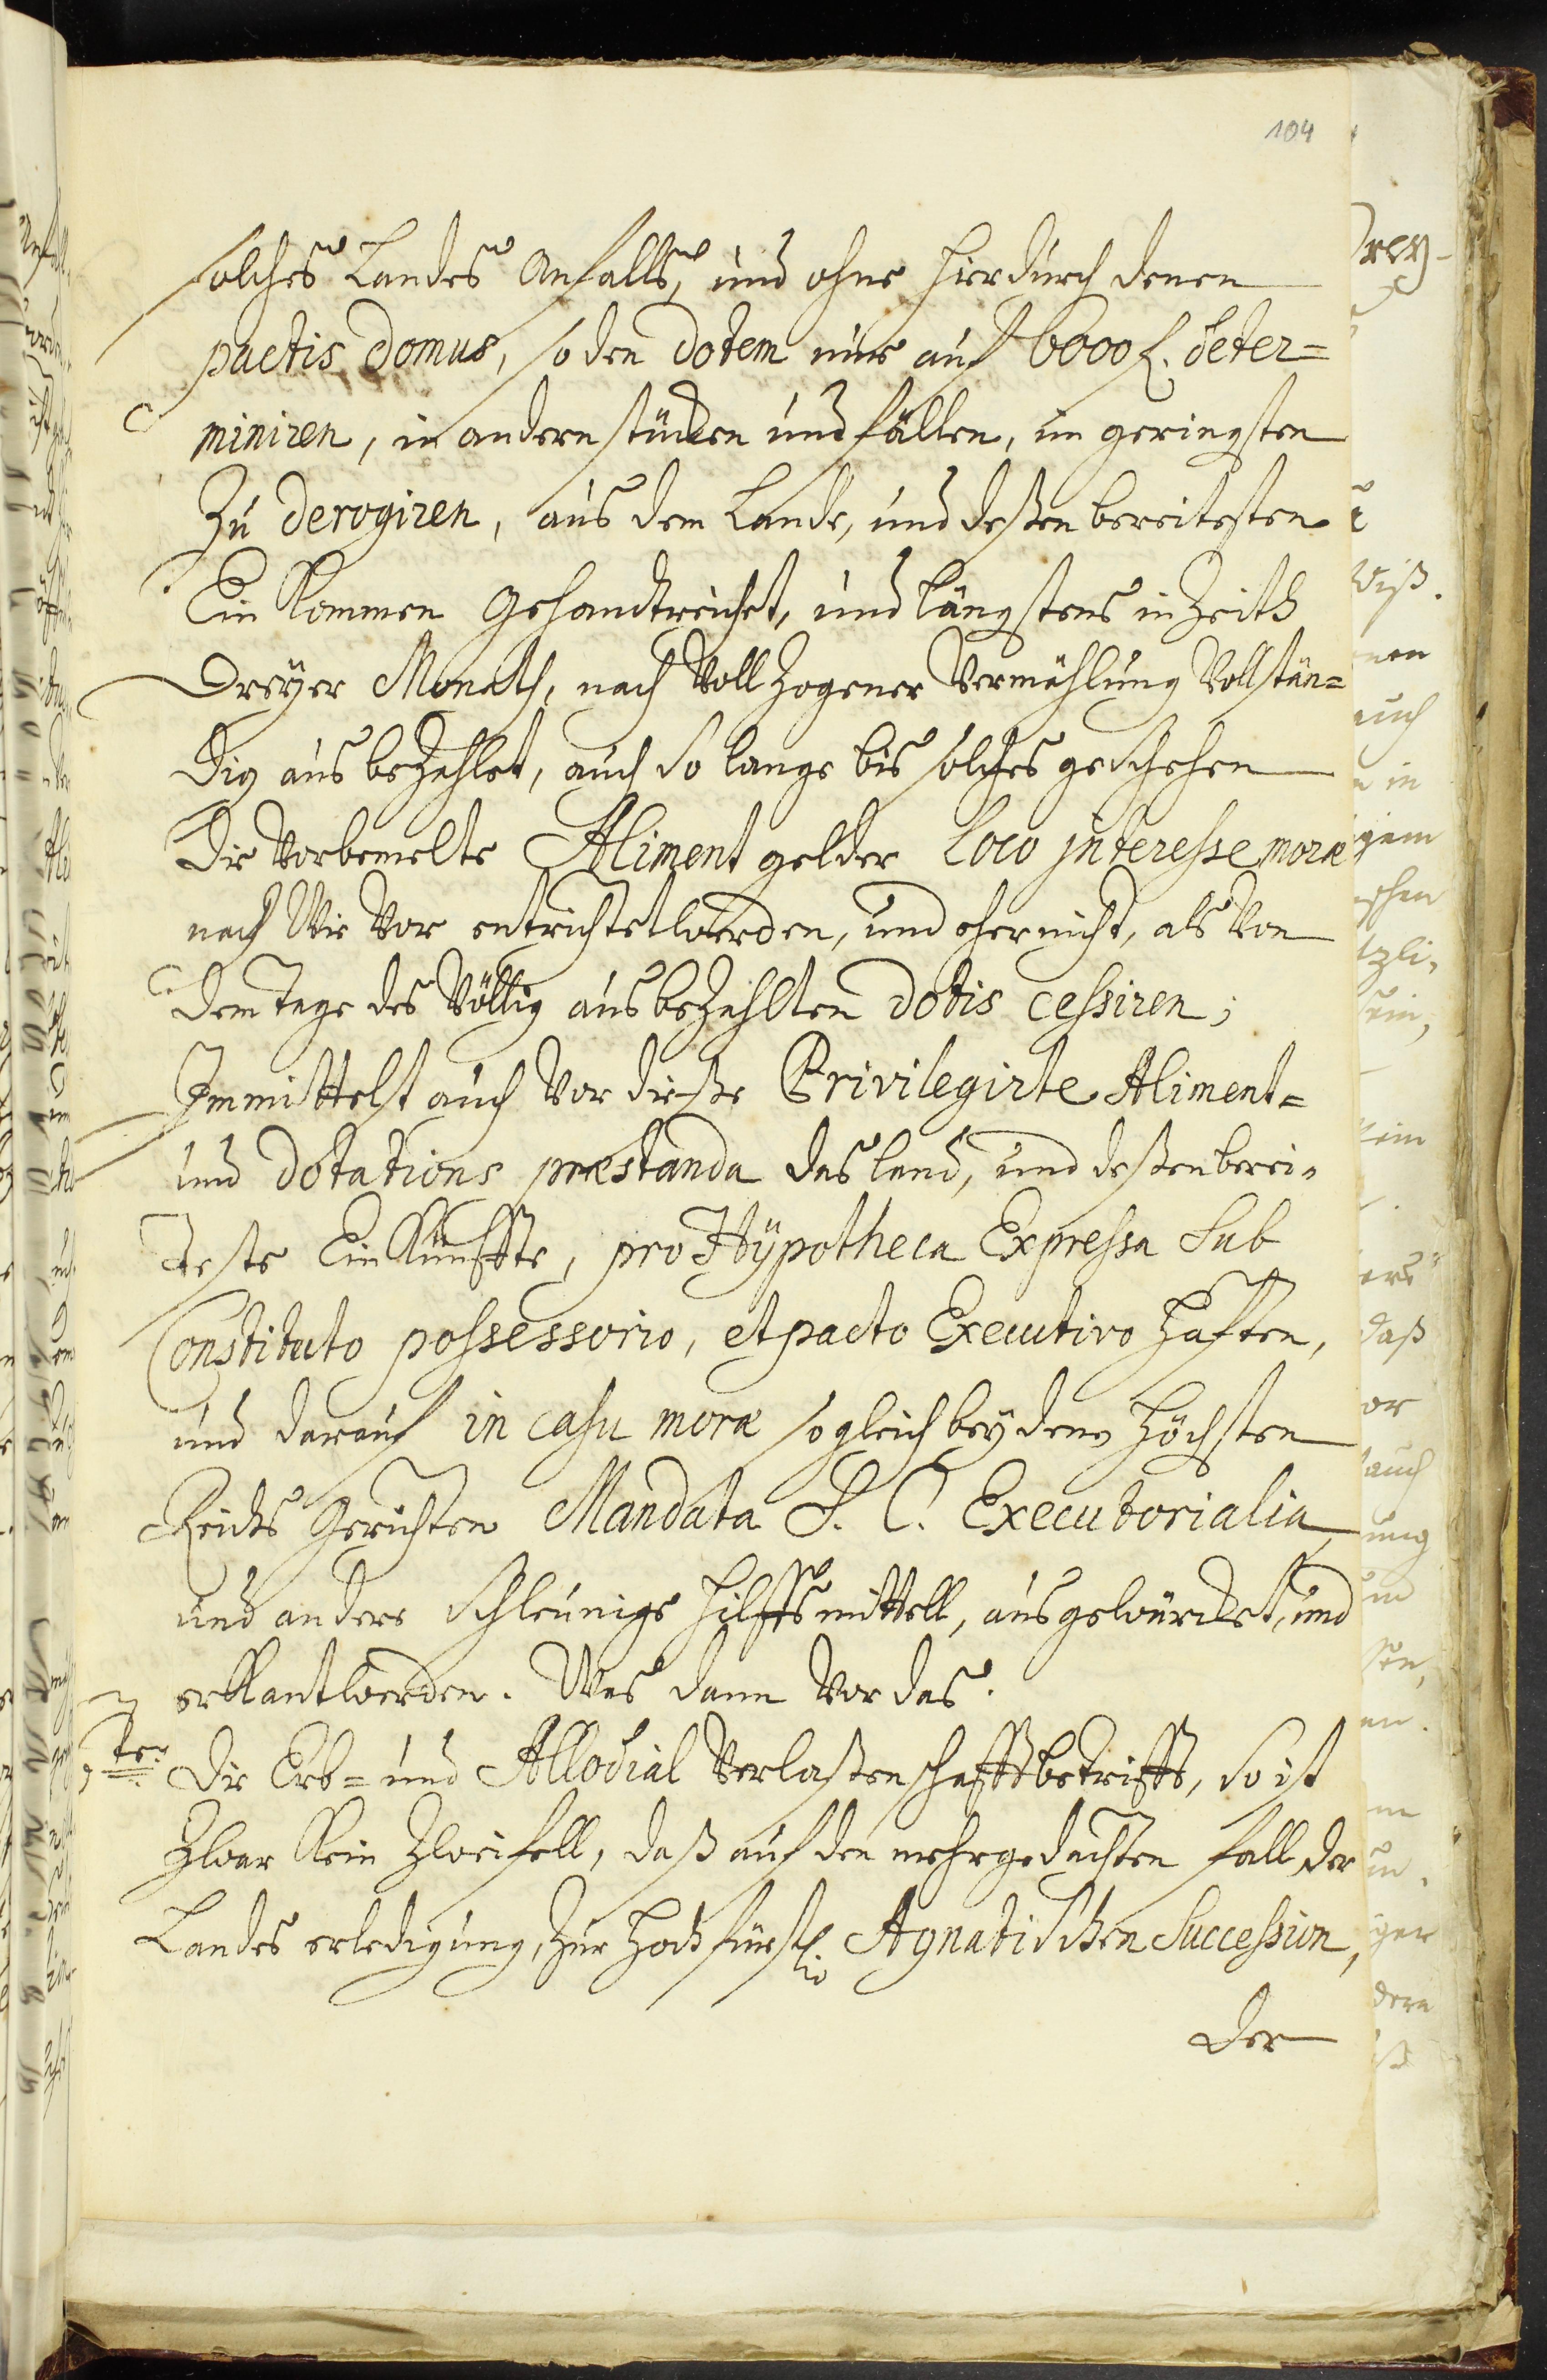 104
solches Landes Anfalls, und ohne hierdurch denen
pactis domus, so den dotem nur auf 6000 f. deter=
miniren, in andern stücken und fällen, im geringsten
Zu derogiren, aus dem Lande, und deßen bereitesten
Ein Kommen gehandtreichet, und längstens in Zeith
dreÿer Monath, nach Voll Zogener Vermählung Vollstän=
dig ausbezahlet, auch so lange bis solches geschehen
die Vorbemelte Aliment gelder loco jnteresse moræ
nach Wie Vor entrichtet werden, und eher nicht, als Von
dem tage des Völlig ausbezahlten dotis cessiren;
Immittelst auch Vor dieße Privilegirte Aliment=
und dotations præstanda das land, und deßen berei=
teste Einkünffte, pro Hÿpotheca Expressa sub
Constituto possessorio, et pacto Executivo hafften,
und darauf in casu moræ sogleich beÿ denen Höchsten
Reichs Gerichten Mandata S. C. Executorialia,
und andere schleunige hilffsmittell, ausgewürcket, und
erkant werden. Was dann Vor das.
7te. die Erb= und Allodial Verlaßenschafft betrifft, so ist
Zwar Kein Zweifell, daß auf den mehrgedachten fall der
Landes erledigung, Zur hochfürstl. Agnatischen Succession,
der